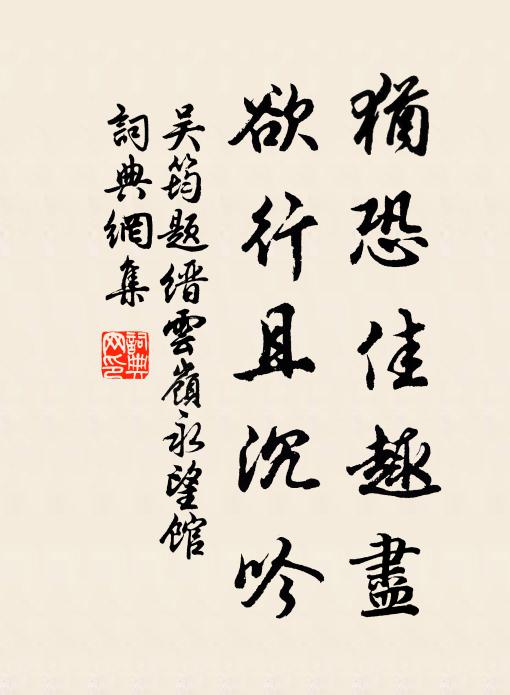 猶恐佳趣盡
欲行且沉吟
吴筠题缙雲嶺永望館
詞典網集
詞典网印